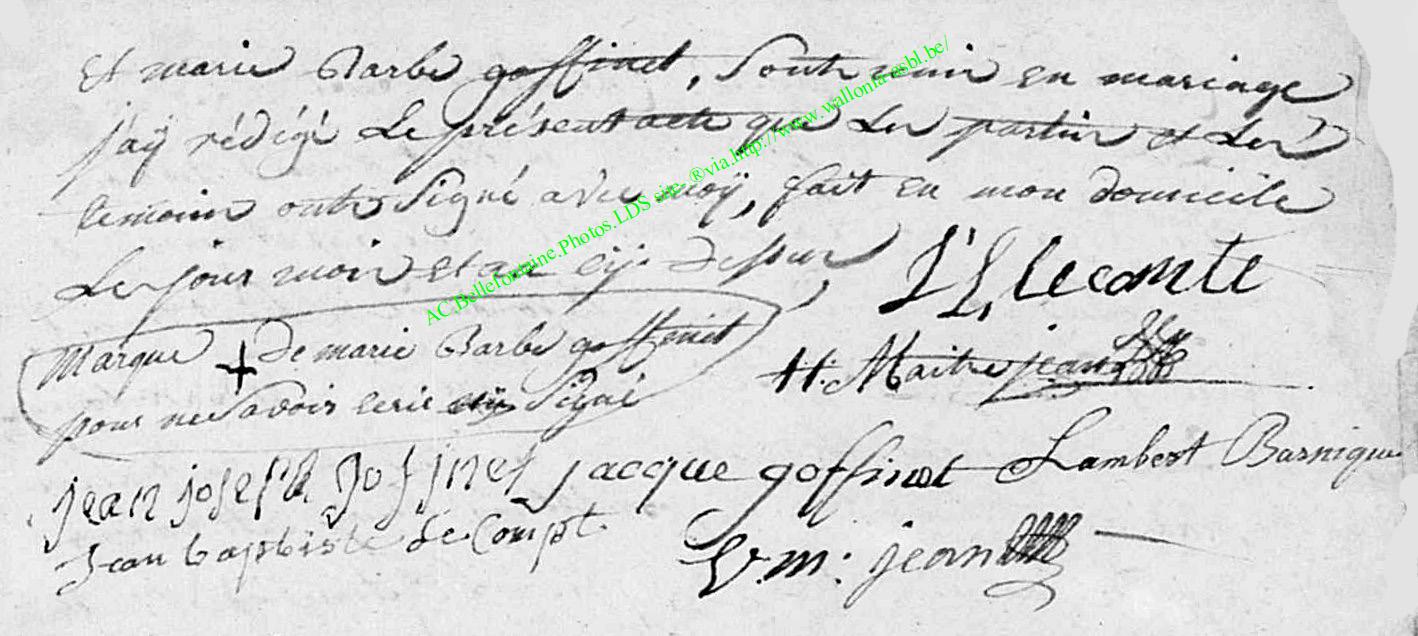 Et marie Barbe goffinet, sont unir en mariage
j'aÿ rédigé le présent acte que les partier et les
temoins ont signé avec moÿ, fait en mon domicile
les jour mois et an cÿ dessus,
J L Lecomte
Marque + de marie Barbe goffinet
pour ne savoir ecrir nÿ signé
H. Maitrejean
jean joseph goffinet jacque goffinet Lambert Barnique
Jean baptiste le Compt
V. m: jean
AC.Bellefontaine.Photos.LDS site.®via.http://www.wallonia-asbl.be/